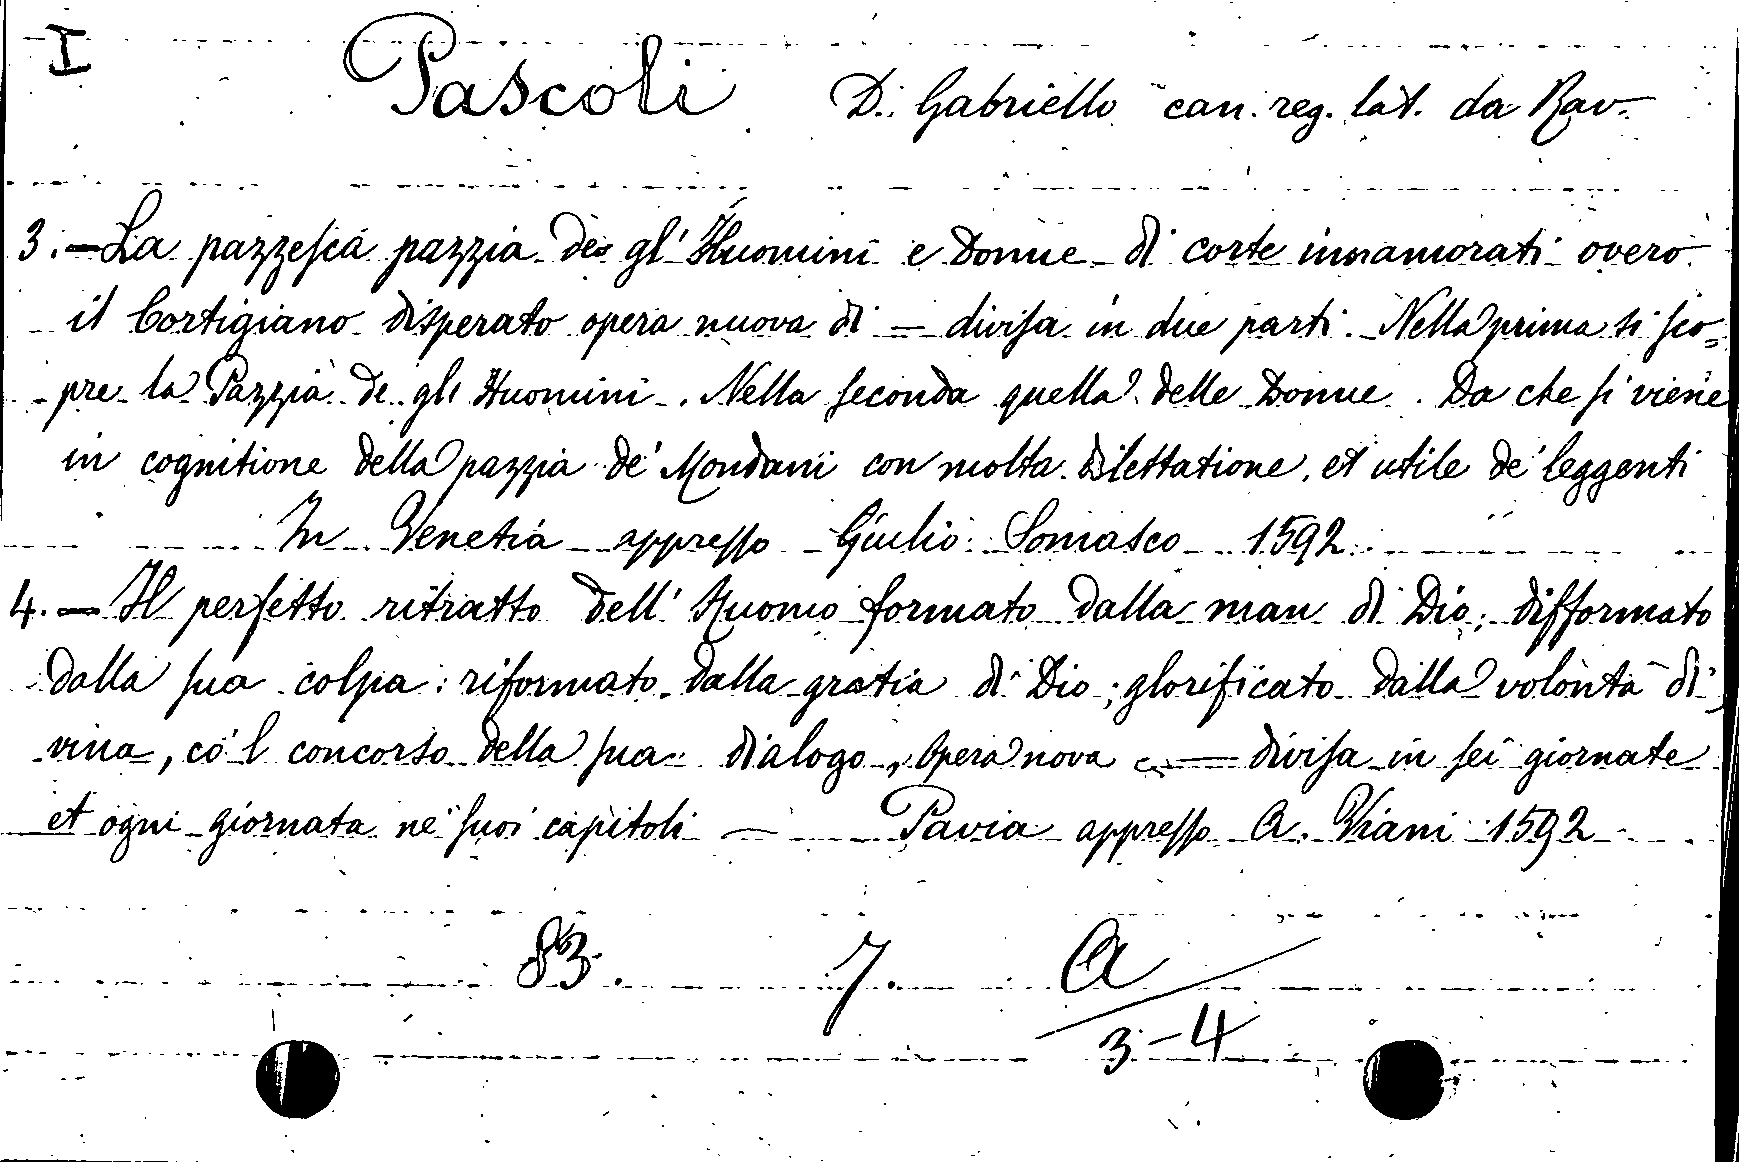 I
Pascoli D. Gabriello can. reg. lat. da Rav.
3. — La pazzesca pazzia de gl' Huomini e Donne di corte innamorati overo
il Cortigiano disperato opera nuova di — divisa in due parti. Nella prima si sco=
pre la Pazzia de gli Huomini. Nella seconda quella delle Donne. Da che si viene
in cognitione della pazzia de' Mondani con molta dilettatione, et utile de' leggenti
In Venetia appresso Giulio Somasco 1592
4. — Il perfetto ritratto dell' Huomo formato dalla man di Dio; difformato
dalla sua colpa: riformato dalla gratia di Dio; glorificato dalla volontà di
vina, co'l concorso della sua dialogo, Opera nova — divisa in sei giornate
et ogni giornata ne' suoi capitoli — Pavia appresso A. Viani 1592
83. 7. A
3-4